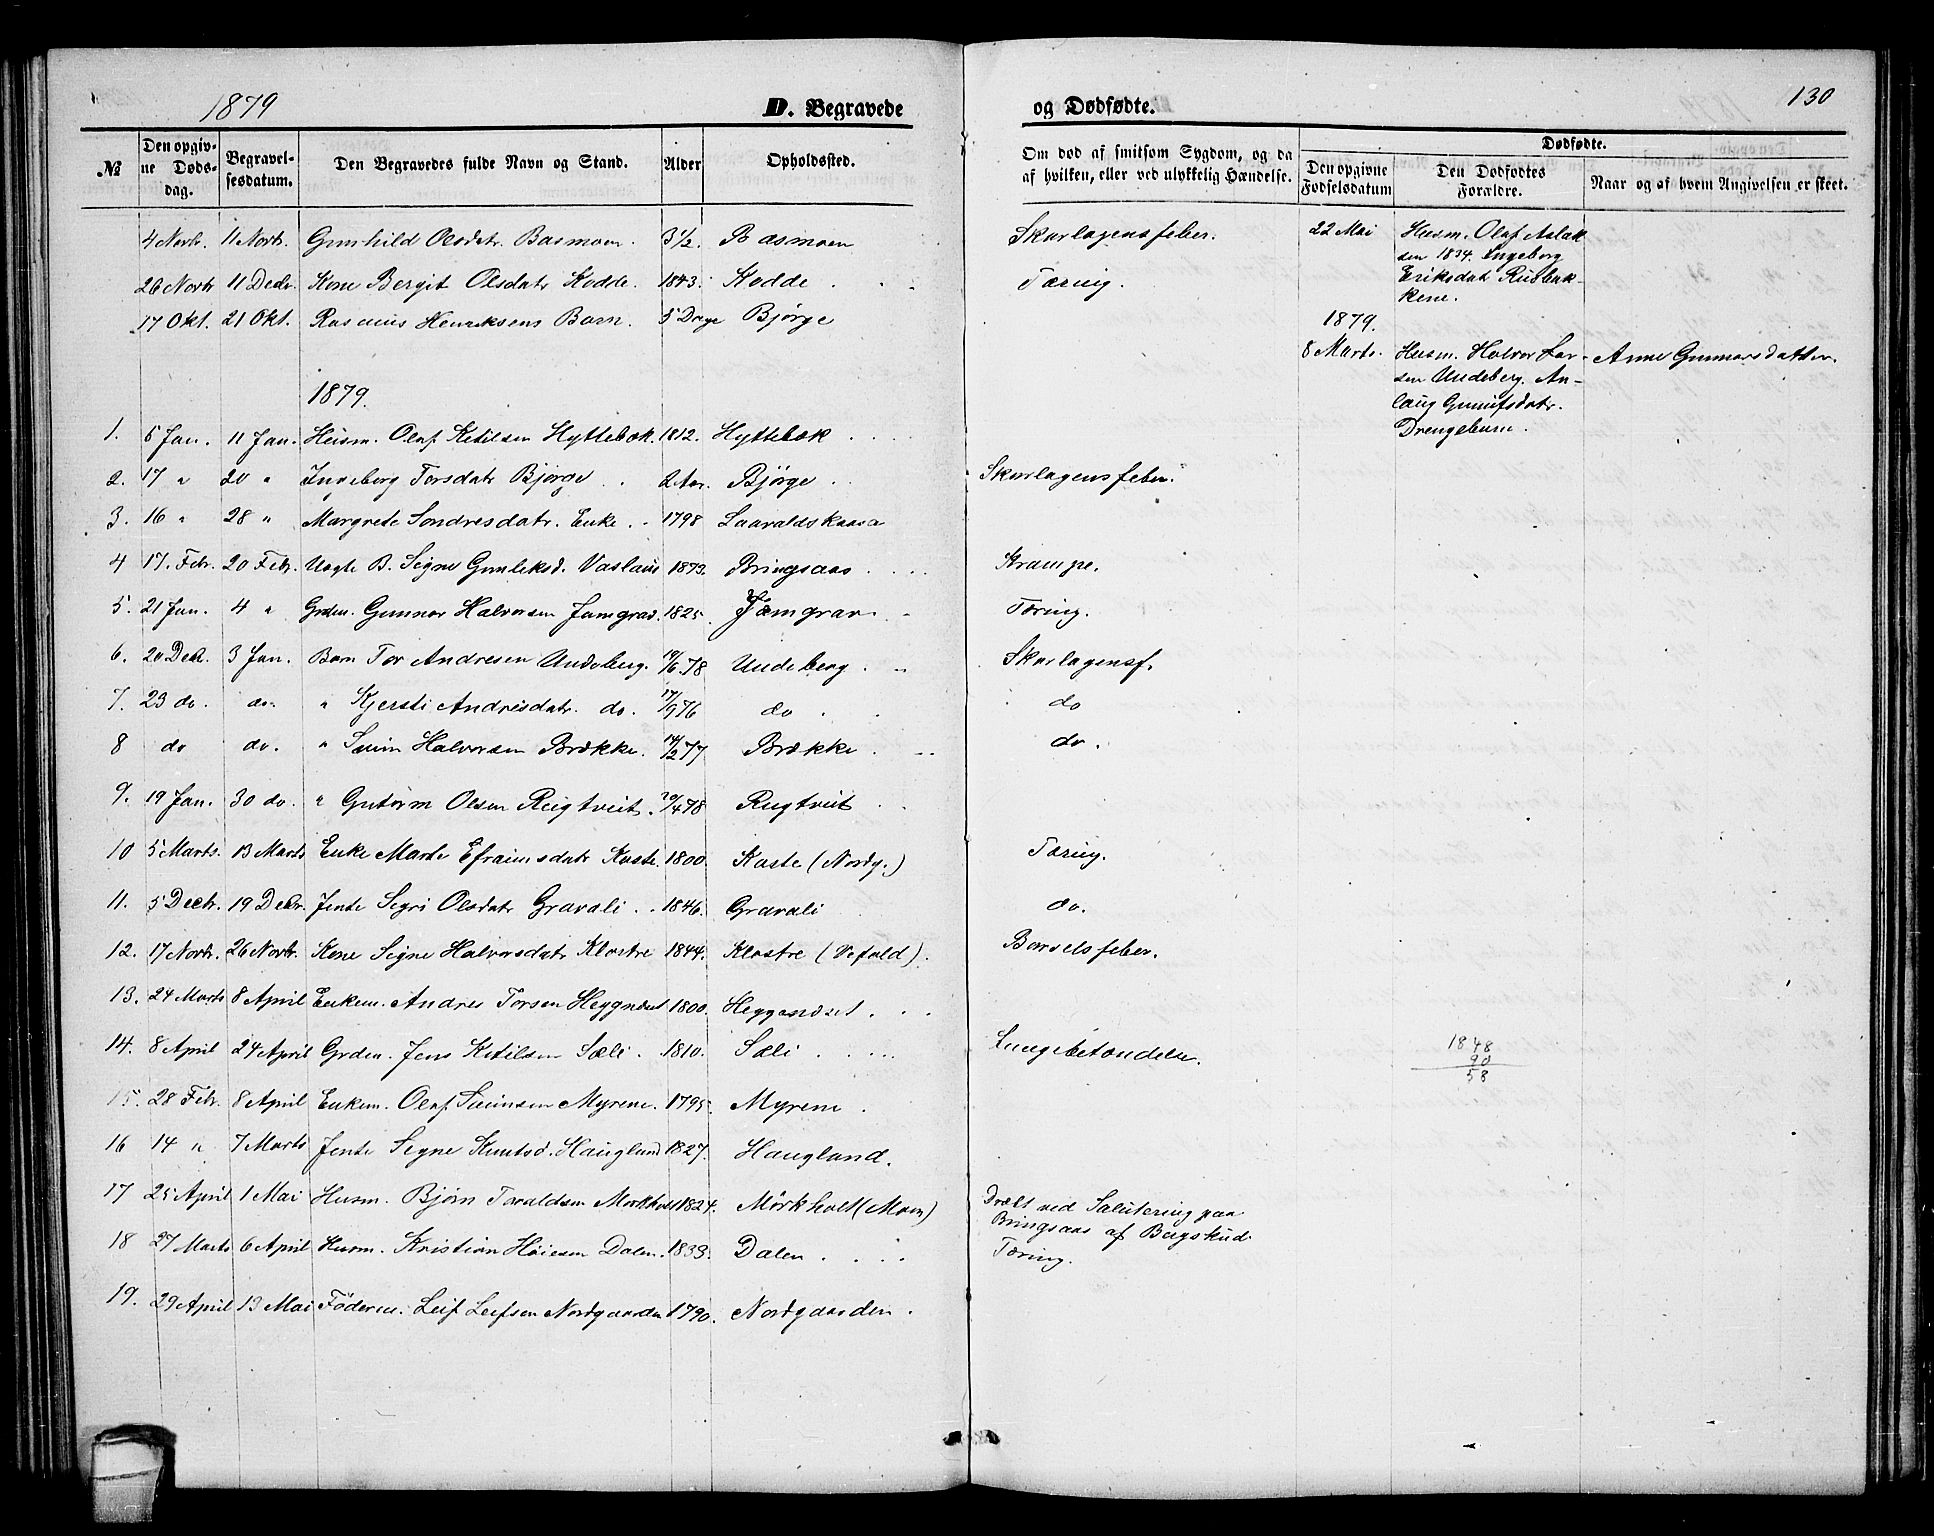 1879
D. Begravede
og Dødfødte.
130
№
Den opgiv-
ne Døds-
dag.
Begravel-
sesdatum.
Den Begravedes fulde Navn og Stand.
Alder
Opholdssted.
Om død af smitsom Sygdom, og da
af hvilken, eller ved ulykkelig Hændelse.
Dødfødte.
Den opgivne
Fødselsdatum
Den Dødfødtes
Forældre.
Naar og af hvem Angivelsen er skeet.
4 Novbr. 11 Novbr. Gunhild Olsdatr. Basmoen. 3½. Basmoen Skarlagensfeber.
26 Novbr 11 Decbr. Kone Bergit Olsdatr Kodde. 1843. Kodde Tæring.
17 Okt. 21 Okt. Rasmus Henriksens Barn. 5 Dage Bjørge
22 Mai Husm. Olaf Aslak
sen 1834. Ingeborg
Eriksdat Rusbak-
kene.
1879.
8 Marts. Husm. Halvor Lar- Anne Gunnarsdatter.
sen Undeberg. An-
laug Gunulfsdatr.
Drengebarn.
1879.
1. 5 Jan. 11 Jan. Husm. Olaf Ketilsen Hyttebæk. 1812. Hyttebæk
2. 17 " 20 " Ingeborg Torsdatr Bjørge 2 Aar. Bjørge Skarlagensfeber.
3. 16 " 28 " Margrete Sondresdatr. Enke. 1798 Laavaldskaasa
4 17. Febr. 20 Febr. Uægte B. Signe Gunleksd. 1873. Bringsaas Krampe.
5. 21 Jan. 4 " Grden. Gunnar Halvorsen Jamgrav. 1825. Jæmgrav Tæring.
6. 20 Dec. 3 Jan. Barn Tor Andresen Undeberg. 19/6 78 Undeberg Skarlagensf.
7. 23 do. do. " Kjersti Andresdatr. do. 17/9 76 do do
8 do do. " Halvorsen Brække. 14/2 77 Brække do.
9. 19 Jan. 30 do. " Gutorm Olsen Rugtveit. 20/4 78 Rugtveit
10 5 Marts. 13 Marts Enke Marte Efraimsdatr Kaste. 1800. Kaste (Nordg.) Tæring.
11. 5 Decbr. 19 Decbr. Jente Sigri Olsdatr Gravali. 1846. Gravali do.
12. 17 Novbr. 26 Novbr. Kone Signe Halvorsdatr Klostre 1844. Klostre (Vefald). Barselsfeber.
13. 24 Marts 8 April Enkem. Andres Torsen 1800. Heggandset.
14. 8 April 24 April Grden. Jens Ketilsen Sæli. 1810. Sæli Lungebetændelse.
1848
90
58
15. 28 Febr. 8 April Enkem. Olaf Myrene. 1795. Myrene.
16 14 " 7 Marts Jente Signe Knutsd. Haugland 1827. Haugland.
17 25 April 1 Mai Husm. Bjørn Toraldsen Mørkholt 1824. Mørkholt (Moen) Dræbt ved Salutering paa
Bringsaas af Bergskud.
18 27 Marts 6 April Husm. Kristian Dalen. 1833. Dalen. Tæring.
19. 29 April 13 Mai Føderm. Leif Leifsen Nordgaarden 1790. Nordgaarden.